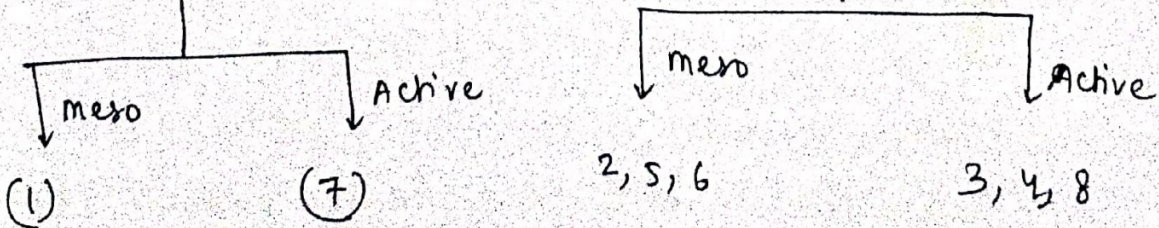 meso Active meso Active
(1) (7) 2, 5, 6 3, 4, 8